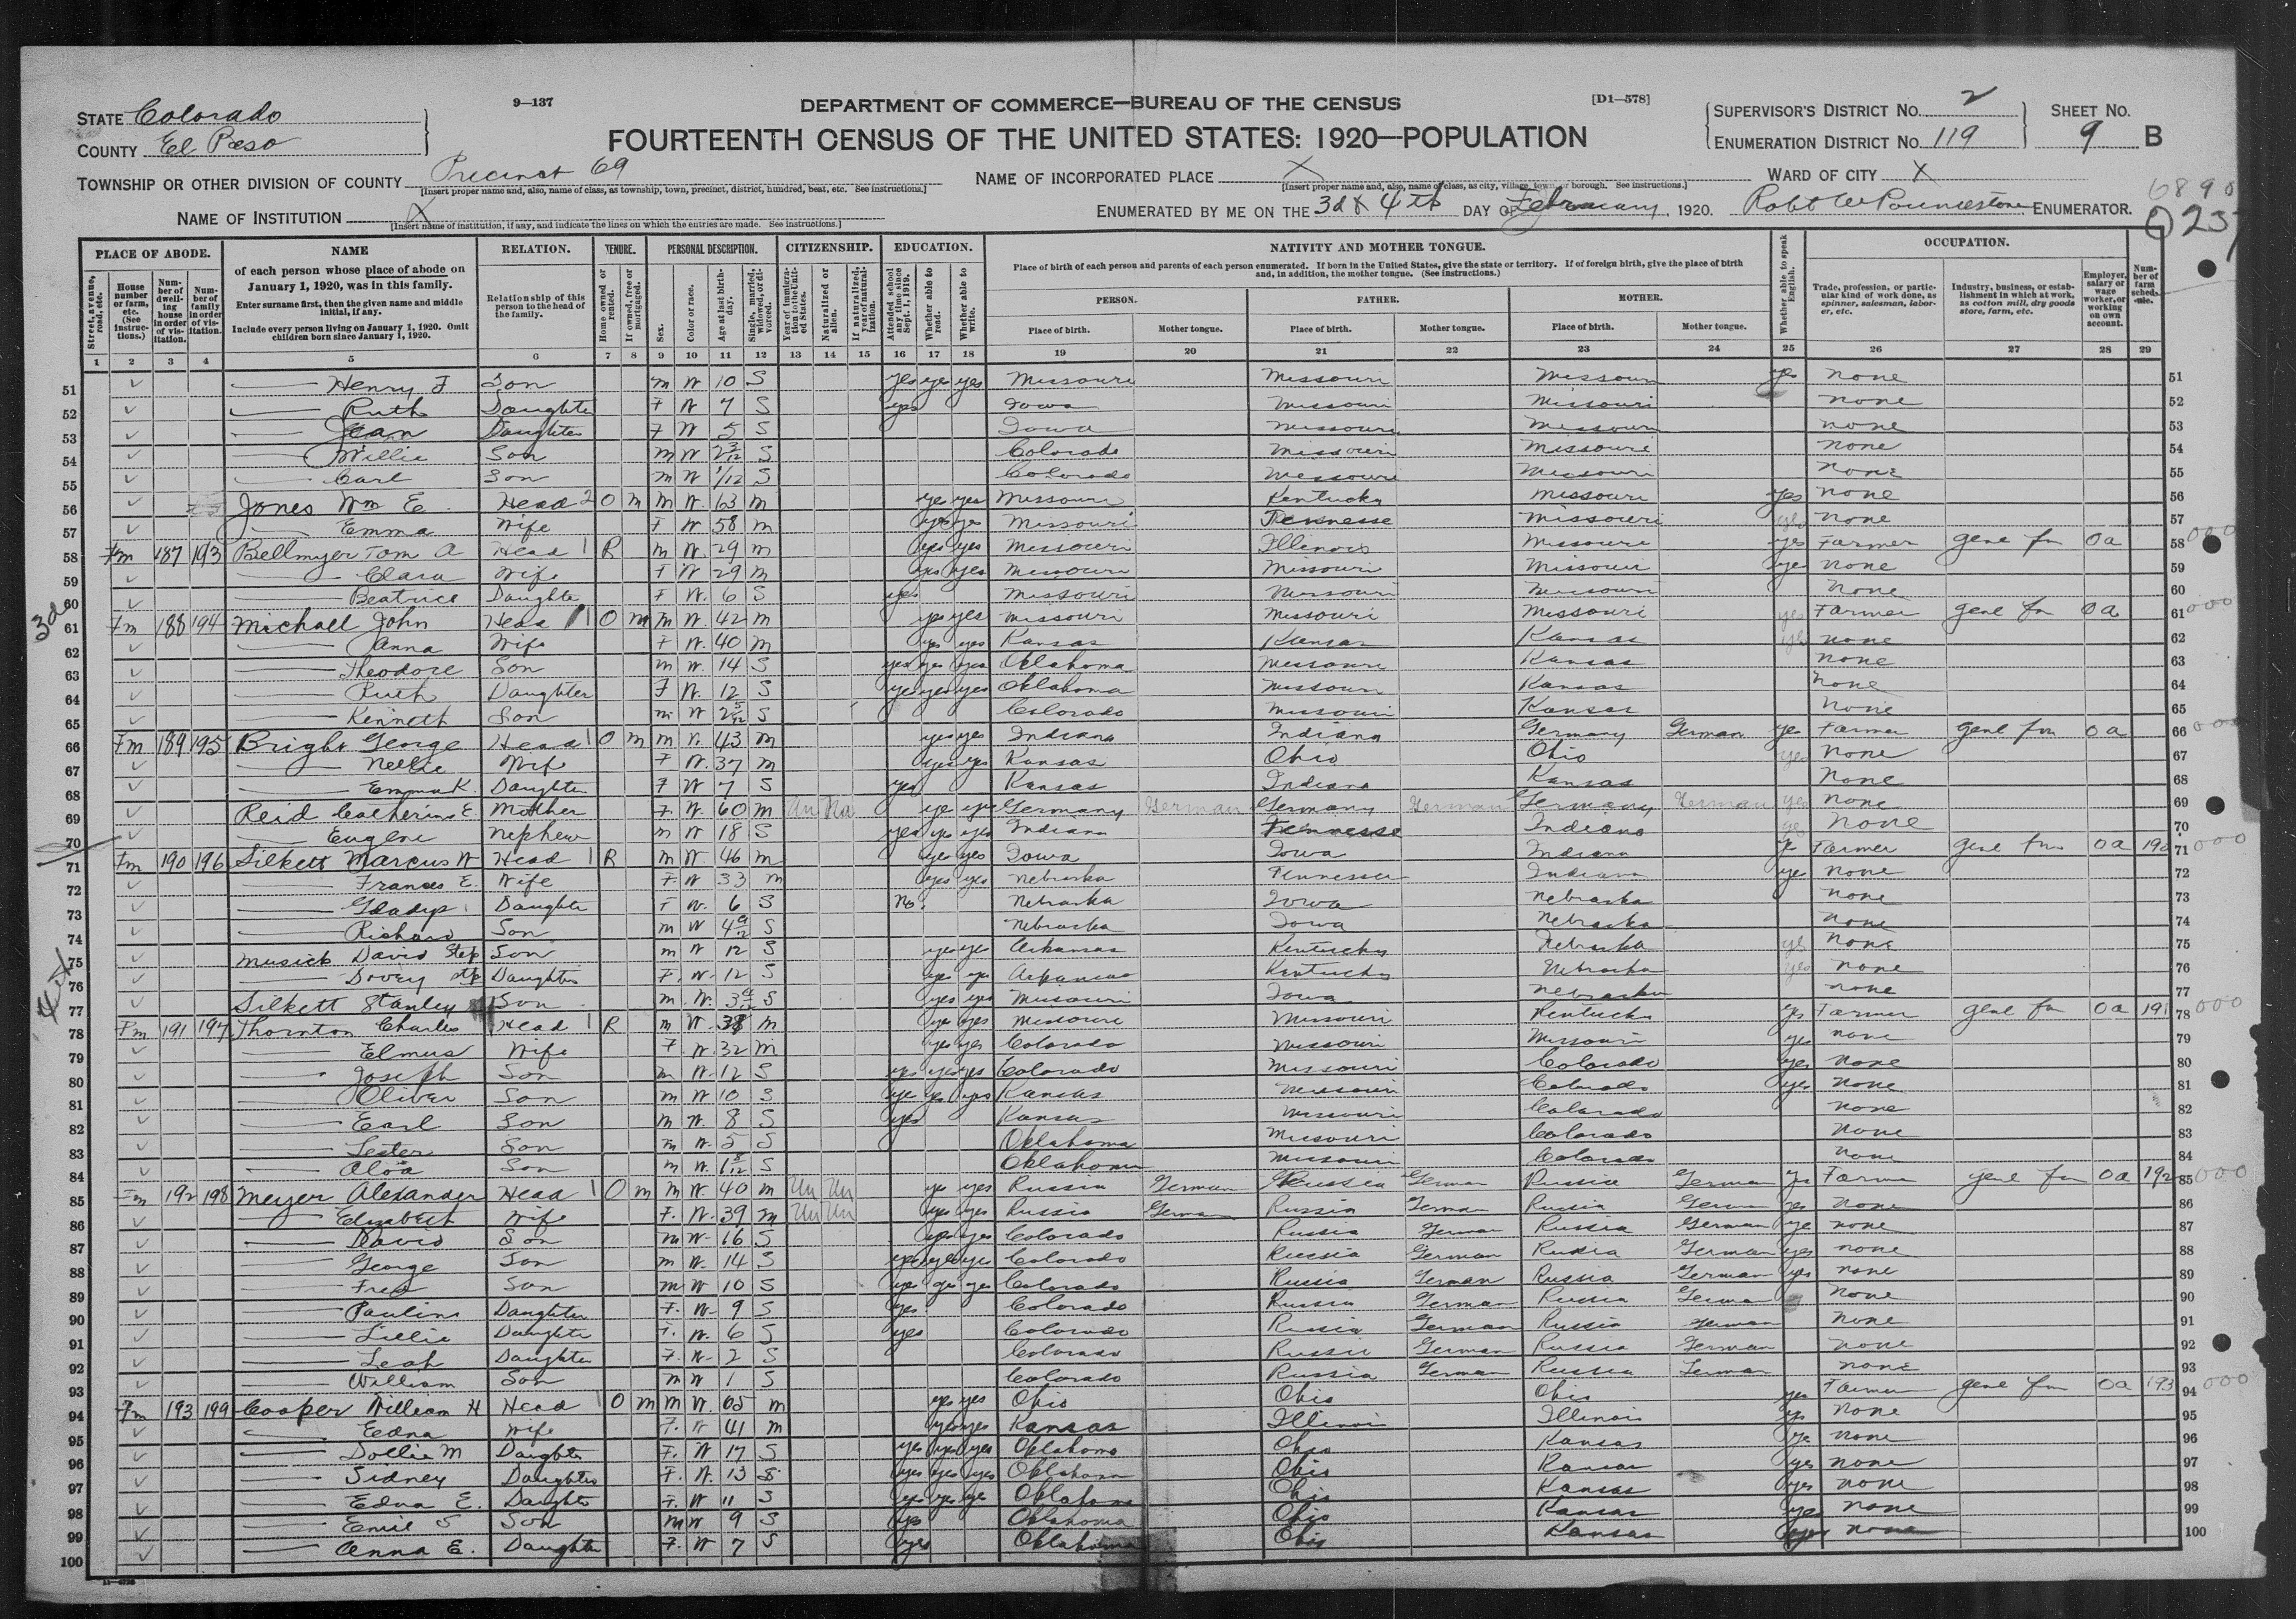 9—137
DEPARTMENT OF COMMERCE—BUREAU OF THE CENSUS
[D1—578]
FOURTEENTH CENSUS OF THE UNITED STATES: 1920—POPULATION
STATE Colorado
COUNTY El Paso
SUPERVISOR'S DISTRICT No. 2
ENUMERATION DISTRICT No. 119
SHEET No. 9 B
TOWNSHIP OR OTHER DIVISION OF COUNTY Precinct 69
[Insert proper name and, also, name of class, as township, town, precinct, district, hundred, beat, etc. See instructions.]
NAME OF INCORPORATED PLACE X
[Insert proper name and, also, name of class, as city, village, town, or borough. See instructions.]
WARD OF CITY X
NAME OF INSTITUTION X
[Insert name of institution, if any, and indicate the lines on which the entries are made. See instructions.]
ENUMERATED BY ME ON THE 3d & 4th DAY OF February, 1920. ENUMERATOR.
PLACE OF ABODE. NAME RELATION. TENURE. PERSONAL DESCRIPTION. CITIZENSHIP. EDUCATION. NATIVITY AND MOTHER TONGUE. OCCUPATION.
51 Henry F Son m W 10 S yes yes yes Missouri Missouri Missouri yes none
52 Ruth Daughter F W 7 S yes Iowa Missouri Missouri none
53 Jean Daughter F W 5 S Iowa Missouri Missouri none
54 Willie Son m W 2 3/12 S Colorado Missouri Missouri none
55 Carl Son m W 1/12 S Colorado Missouri Missouri none
56 Jones Wm E. Head 2 O m m W 63 m yes yes Missouri Kentucky Missouri yes none
57 Emma Wife F W 58 m yes yes Missouri Tennesse Missouri yes none
58 Fm 187 193 Bellmyer Tom A Head 1 R m W 29 m yes yes Missouri Illinois Missouri yes Farmer genl fm oa
59 Clara Wife F W 29 m yes yes Missouri Missouri Missouri yes none
60 Beatrice Daughter F W 6 S yes Missouri Missouri Missouri none
61 Fm 188 194 Michall John Head 1 O m m W 42 m yes yes Missouri Missouri Missouri yes Farmer genl fm oa
62 Anna Wife F W 40 m yes yes Kansas Kansas Kansas yes none
63 Theodore Son m W 14 S yes yes yes Oklahoma Missouri Kansas none
64 Ruth Daughter F W 12 S yes yes yes Oklahoma Missouri Kansas none
65 Kenneth Son m W 2 5/12 S Colorado Missouri Kansas none
66 Fm 189 195 Bright George Head 1 O m m W 43 m yes yes Indiana Indiana Germany German yes Farmer genl fm oa
67 Nellie Wife F W 37 m yes yes Kansas Ohio Ohio yes none
68 Emma K. Daughter F W 7 S yes Kansas Indiana Kansas none
69 Reid Catherine E Mother F W 60 m Un Na yes yes Germany German Germany German Germany German yes none
70 Eugene Nephew m W 18 S yes yes yes Indiana Tennesse Indiana yes none
71 Fm 190 196 Silkett Marcus W Head 1 R m W 46 m yes yes Iowa Iowa Indiana yes Farmer genl fm oa 190
72 Frances E. Wife F W 33 m yes yes Nebraska Tennessee Indiana yes none
73 Gladys Daughter F W 6 S No Nebraska Iowa Nebraska none
74 Richard Son m W 4 S Nebraska Iowa Nebraska none
75 Musick David Step Son m W 12 S yes yes Arkansas Kentucky Nebraska yes none
76 Dovey stp Daughter F W 12 S yes yes Arkansas Kentucky Nebraska yes none
77 Silkett Stanley Son m W 3 S yes yes Missouri Iowa Nebraska none
78 Fm 191 197 Thornton Charles Head 1 R m W 38 m yes yes Missouri Missouri Kentucky yes Farmer genl fm oa 191
79 Elmus Wife F W 32 m yes yes Colorado Missouri Missouri yes none
80 Joseph Son m W 12 S yes yes yes Colorado Missouri Colorado yes none
81 Oliver Son m W 10 S yes yes yes Kansas Missouri Colorado yes none
82 Earl Son m W 8 S yes Kansas Missouri Colorado none
83 Lester Son m W 5 S Oklahoma Missouri Colorado none
84 Son m W 1 8/12 S Oklahoma Missouri Colorado none
85 Fm 192 198 Meyer Alexander Head 1 O m m W 40 m Un Un yes yes Russia German Russia German Russia German yes Farmer genl fm oa 192
86 Elizabeth Wife F W 39 m Un Un yes yes Russia German Russia German Russia German yes none
87 David Son m W 16 S yes yes Colorado Russia German Russia German yes none
88 George Son m W 14 S yes yes yes Colorado Russia German Russia German yes none
89 Fred Son m W 10 S yes yes yes Colorado Russia German Russia German yes none
90 Pauline Daughter F W 9 S yes Colorado Russia German Russia German none
91 Lillie Daughter F W 6 S yes Colorado Russia German Russia German none
92 Leah Daughter F W 2 S Colorado Russia German Russia German none
93 William Son m W 1 S Colorado Russia German Russia German none
94 Fm 193 199 Cooper William H Head 1 O m m W 65 m yes yes Ohio Ohio Ohio yes Farmer genl fm oa 193
95 Edna Wife F W 41 m yes yes Kansas Illinois Illinois yes none
96 Dollie M Daughter F W 17 S yes yes yes Oklahoma Ohio Kansas yes none
97 Sidney Daughter F W 13 S yes yes yes Oklahoma Ohio Kansas yes none
98 Edna E. Daughter F W 11 S yes yes yes Oklahoma Ohio Kansas yes none
99 Emil S Son m W 9 S yes Oklahoma Ohio Kansas yes none
100 Anna E. Daughter F W 7 S yes Oklahoma Ohio Kansas none